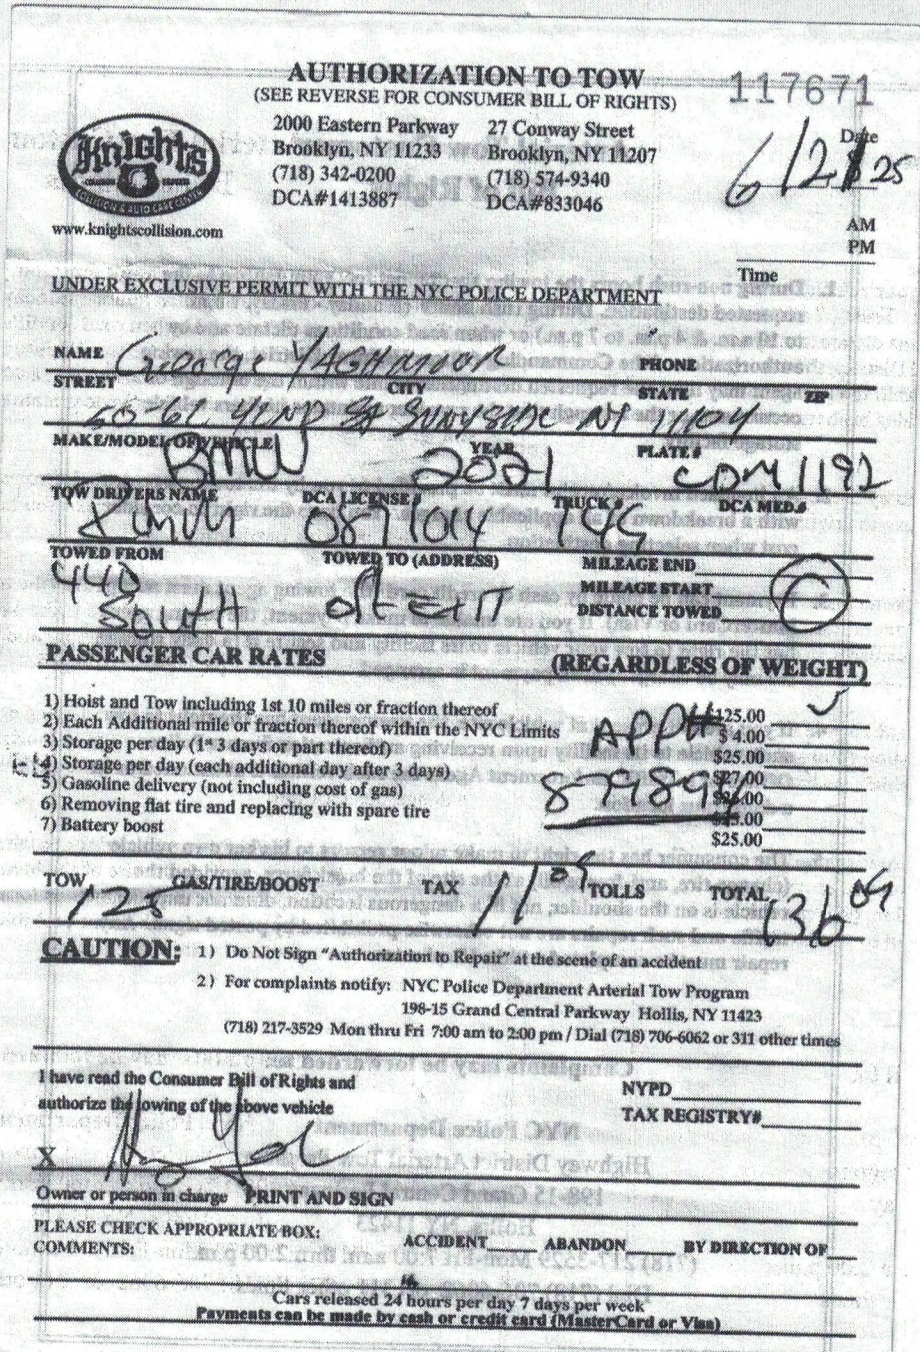 AUTHORIZATION TO TOW
(SEE REVERSE FOR CONSUMER BILL OF RIGHTS)
117671
Knights
COLLISION & AUTO CARE CENTER
www.knightscollision.com
2000 Eastern Parkway 27 Conway Street
Brooklyn, NY 11233 Brooklyn, NY 11207
(718) 342-0200 (718) 574-9340
DCA#1413887 DCA#833046
Date
6/2 25
AM
PM
Time
UNDER EXCLUSIVE PERMIT WITH THE NYC POLICE DEPARTMENT
NAME George YAGHMOUR PHONE
STREET CITY STATE ZIP
ST SUNYSIDE NY 11104
MAKE/MODEL OF VEHICLE BMW YEAR 2021 PLATE#
TOW DRIVERS NAME DCA LICENSE # TRUCK # DCA MED.#
0871014 116
TOWED FROM TOWED TO (ADDRESS) MILEAGE END
440 MILEAGE START
South of Exit DISTANCE TOWED
PASSENGER CAR RATES (REGARDLESS OF WEIGHT)
1) Hoist and Tow including 1st 10 miles or fraction thereof $125.00 ✓
2) Each Additional mile or fraction thereof within the NYC Limits $ 4.00
3) Storage per day (1st 3 days or part thereof) $25.00
4) Storage per day (each additional day after 3 days) $27.00
5) Gasoline delivery (not including cost of gas)
6) Removing flat tire and replacing with spare tire
7) Battery boost $25.00
APP#
TOW 125 GAS/TIRE/BOOST TAX 11 09 TOLLS TOTAL 136 09
CAUTION: 1) Do Not Sign "Authorization to Repair" at the scene of an accident
2) For complaints notify: NYC Police Department Arterial Tow Program
198-15 Grand Central Parkway Hollis, NY 11423
(718) 217-3529 Mon thru Fri 7:00 am to 2:00 pm / Dial (718) 706-6062 or 311 other times
I have read the Consumer Bill of Rights and NYPD
authorize the towing of the above vehicle TAX REGISTRY#
X
Owner or person in charge PRINT AND SIGN
PLEASE CHECK APPROPRIATE BOX: ACCIDENT ABANDON BY DIRECTION OF
COMMENTS:
Cars released 24 hours per day 7 days per week
Payments can be made by cash or credit card (MasterCard or Visa)